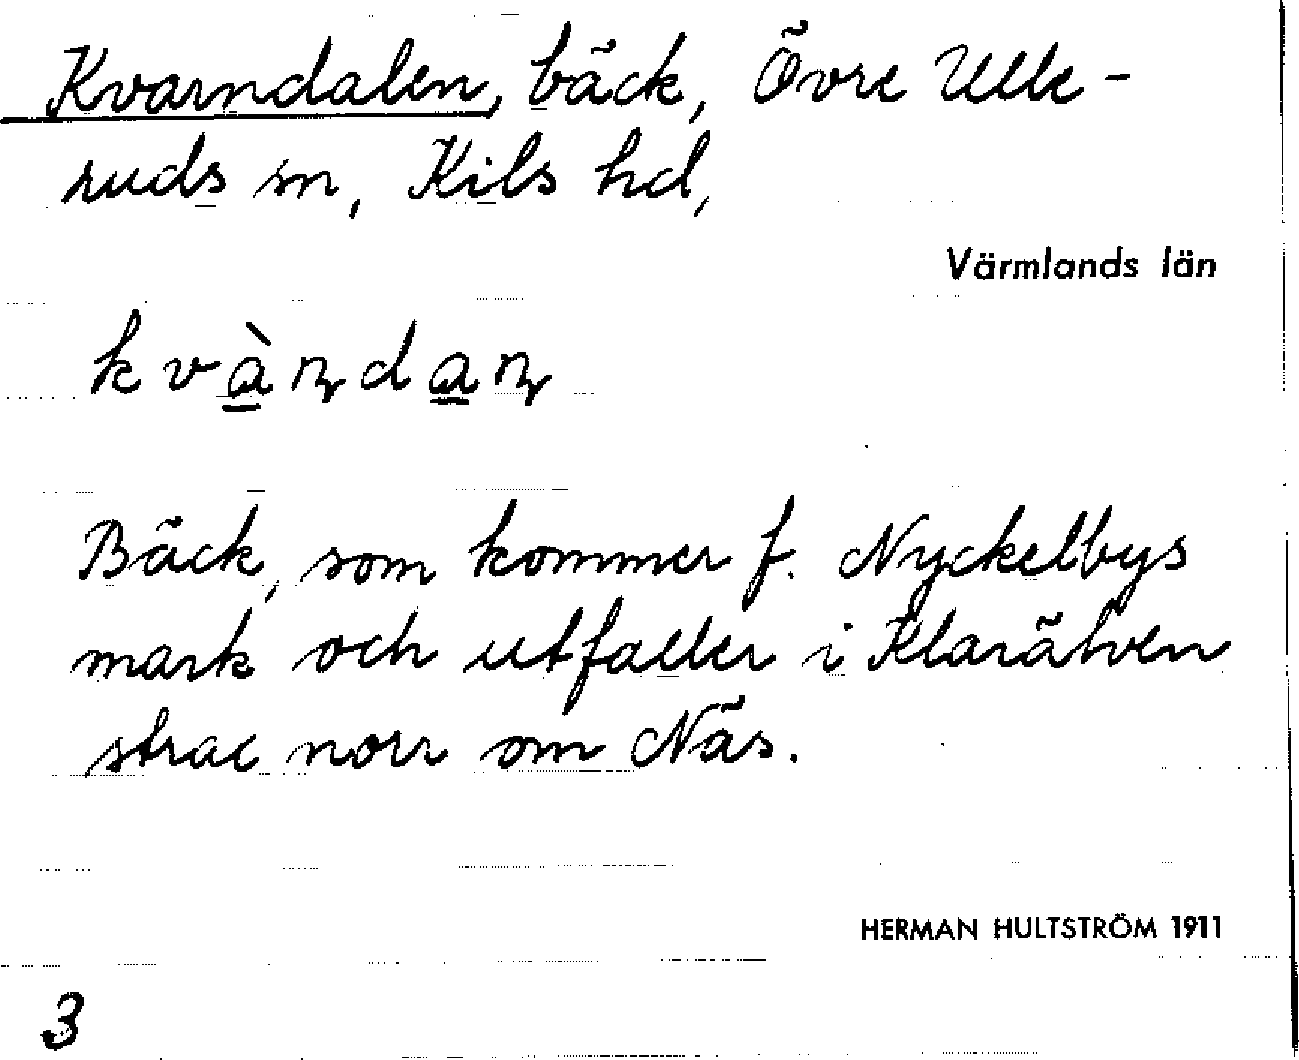 Kvarndalen, bäck, Övre Ulle-
ruds sn, Kils hd,
Värmlands län
kvа̱̀ɳda̱ɳ
Bäck, som kommer f. Nyckelbys
mark och utfaller i Klarälven
strax norr om Näs.
HERMAN HULTSTRÖM 1911
3